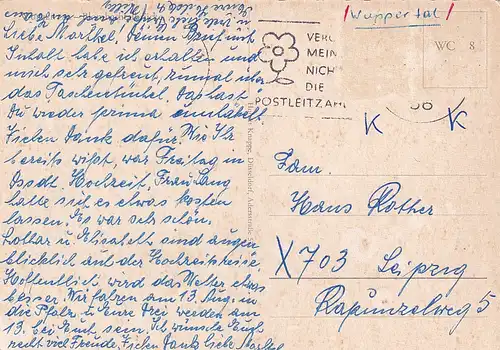 Liebe Martha! Deinen Brief mit
Inhalt habe ich erhalten und
mich sehr gefreut, zumal über
das Taschentüchel. Das hast
Du wieder prima umhäkelt.
Vielen Dank dafür. Wie Ihr
bereits wißt, war Freitag in
Dssdf. Hochzeit, Frau Lang
hatte sich es etwas kosten
lassen. Es war sehr schön.
Lothar u. Elisabeth sind augen
blicklich auf der Hochzeitsreise.
Hoffentlich wird das Wetter etwas
besser. Wir fahren am 13. Aug. in
die Pfalz u. Eure Drei werden am
13. bei Euch sein. Ich wünsche Euch
recht viel Freude. Vielen Dank liebe
/Wuppertal/
VERG
MEIN
NICH
DIE
POSTLEITZAH
WC 8
K K
Fam.
Hans Rother
X 703 Leipzig
Rapunzelweg 5
Knupps, Düsseldorf, Adersstraße